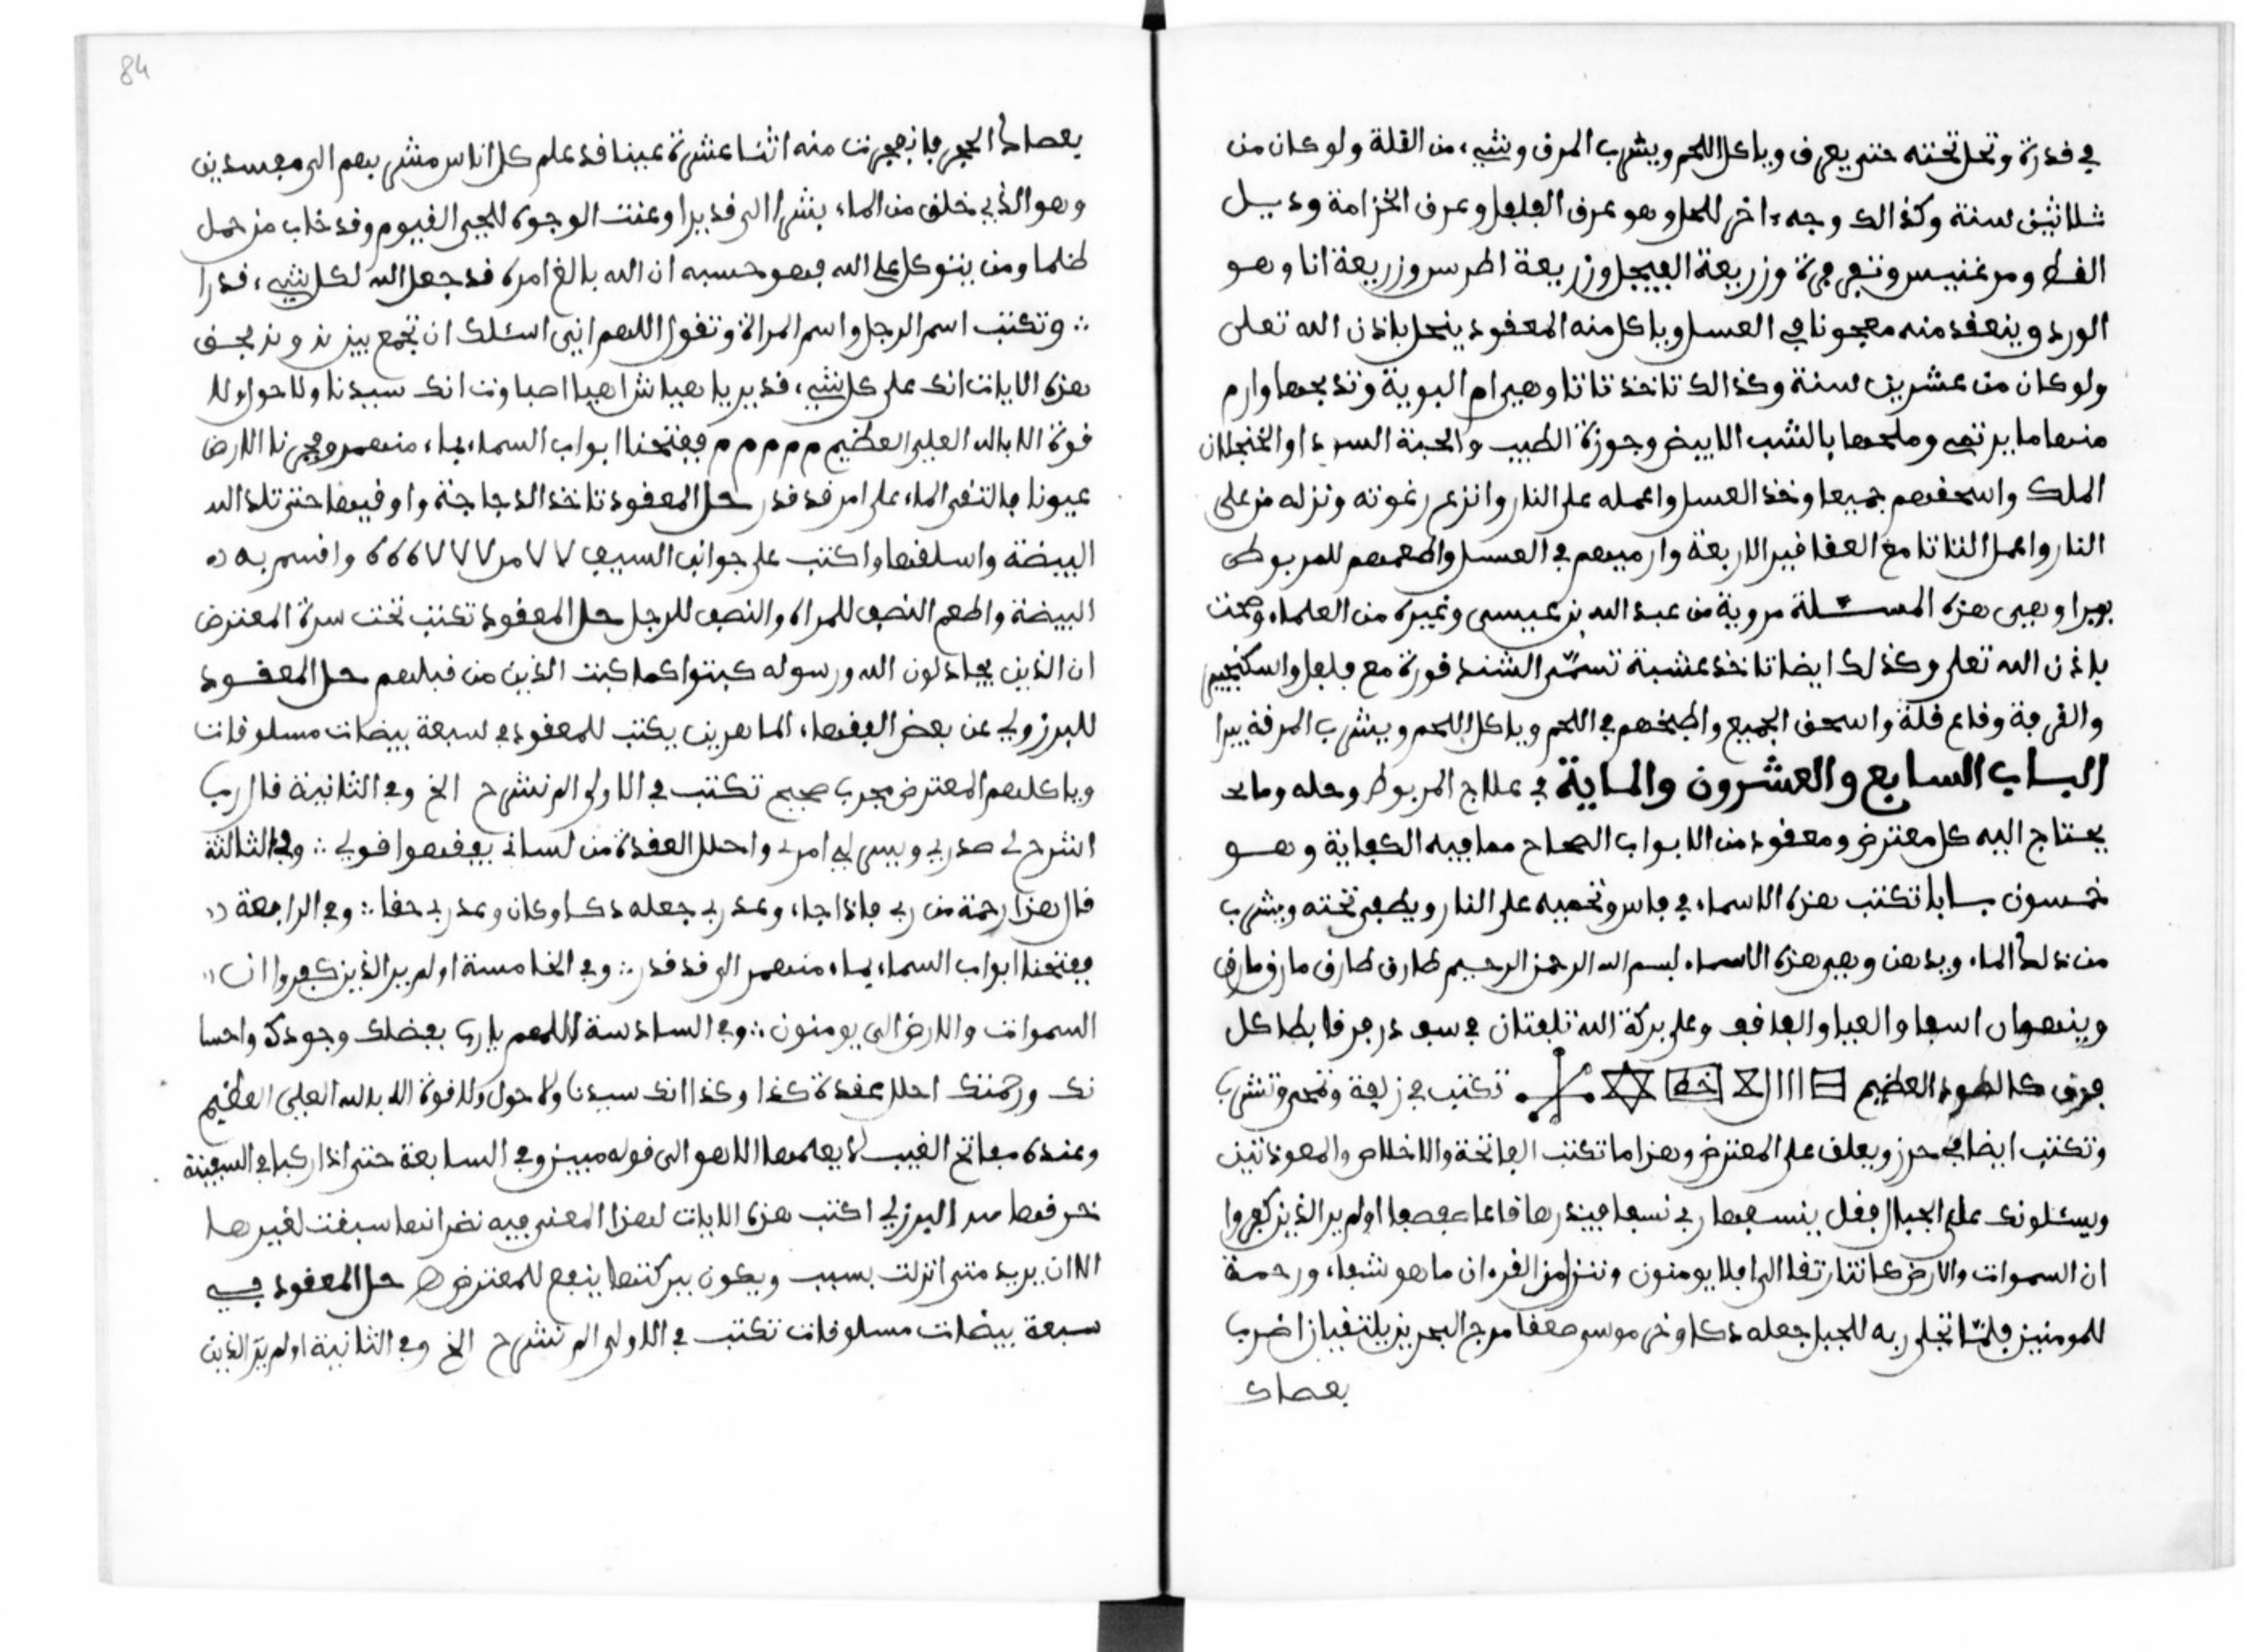 في قدرة وتحل تحته حتى يعرف وياكل اللحم ويشرب المرق وشيء من القلة ولو كان من
ثلاثين سنة وكذالك وجه ءاخر للحل وهو عرف الفلفل وعرف الخزامة وذيل
الفط ومرغنيس وتفرفرة وزريعة الفيجل وزريعة اطرسر وزريعة انا وهو
الورد وينعقد منه معجونا في العسل وياكل منه المعقود ينحل باذن الله تعلى
ولو كان من عشرين سنة وكذالك تاخذ تاتا وهي ام البوية وتذبحها وارم
منها ما يرتمى وملحها بالشب الابيض وجوزة الطيب والحبة السودا والخنجلان
الملك واسحقهم جميعا وخذ العسل واعمله على النار وانزع رغوته ونزله من على
النار واعمل التاتا مع العقاقير الاربعة وارميهم في العسل واطعمهم للمربوط
يبرا وهي هذه المسئلة مروية من عبد الله بن عيسى وغيره من العلماء وصحت
باذن الله تعلى وكذلك ايضا تاخذ عشبة تسمى الشندقورة مع فلفل واسكنجبير
والقرفة وقاع قلة واسحق الجميع واطبخهم في اللحم وياكل اللحم ويشرب المرقة يبرا
الباب السابع والعشرون والماية في علاج المربوط وحله وما
يحتاج اليه كل معترض ومعقود من الابواب الصحاح مما فيه الكفاية وهو
خمسون بابا تكتب هذه الاسماء في فاس وتحميه على النار ويطفى تحته ويشرب
من ذلك الماء ويدهن وهي هذه الاسماء بسم الله الرحمن الرحيم طارق طارق مارق مارق
وعلى بركة الله تلفتان
فرق كالطود العظيم تكتب في زلفة وتمحى وتشرب
وتكتب ايضا في حرز ويعلق على المعترض وهذا ما تكتب الفاتحة والاخلاص والمعوذتين
ويسئلونك على الجبال فقل ينسفها ربي نسفا فيذرها قاعا صفصفا اولم ير الذين كفروا
ان السموات والارض كانتا رتقا الى افلا يومنون وننزل من القرءان ما هو شفاء ورحمة
للمومنين فلما تجلى ربه للجبل جعله دكا وخر موسى صعقا مرج البحرين يلتقيان اضرب
بعصاك
بعصاك الحجر فانفجرت منه اثنتا عشرة عينا قد علم كل اناس مشربهم الى مفسدين
وهو الذي خلق من الماء بشرا الى قديرا وعنت الوجوه للحي القيوم وقد خاب من حمل
ظلما ومن يتوكل على الله فهو حسبه ان الله بالغ امره قد جعل الله لكل شيء قدرا
وتكتب اسم الرجل واسم المراة وتقول اللهم اني اسئلك ان تجمع بين بحق
هذه الايات انك على كل شيء قدير يا هيا شراهيا اصباوت انك سيدنا ولا حول ولا
قوة الا بالله العلي العظيم م م م م م ففتحنا ابواب السماء بماء منهمر وفجرنا الارض
عيونا فالتقى الماء على امر قد قدر حل المعقود تاخذ الدجاجة واوفيها حتى تلد الـ
البيضة واسلقها واكتب على جوانب السيف واقسم به
البيضة واطعم النصف للمراه والنصف للرجل حل المعقود تكتب تحت سرة المعترض
ان الذين يحادلون الله ورسوله كبتوا كما كبت الذين من قبلهم حل المعقود
للبرزولي عن بعض الفقهاء الماهرين يكتب للمعقود في سبعة بيضات مسلوقات
وياكلهم المعترض مجرب صحيح تكتب في الاولى الم نشرح الخ وفي الثانية قال رب
اشرح لي صدري ويسر لي امري واحلل العقدة من لساني يفقهوا قولي وفي الثالثة
قال هذا رحمة من ربي فاذا جاء وعد ربي جعله دكا وكان وعد ربي حقا وفي الرابعة
ففتحنا ابواب السماء بماء منهمر الى قد قدر وفي الخامسة اولم ير الذين كفروا ان
السموات والارض الى يومنون وفي السادسة اللهم يارب بفضلك وجودك واحسا
نك ورحمتك احلل عقدة كذا وكذا انك سيدنا ولا حول ولا قوة الا بالله العلي العظيم
وعنده مفاتح الغيب لا يعلمها الا هو الى قوله مبين وفي السابعة حتى اذا ركبا في السفينة
خرقها البرزلي اكتب هذه الايات لهذا المعنى فيه نظر انها سبقت لغيرها
الا ان يريد متى انزلت بسبب ويكون ببركتها ينفع للمعترض حل المعقود في
سبعة بيضات مسلوقات تكتب في الاولى الم نشرح الخ وفي الثانية اولم ير الذين
84